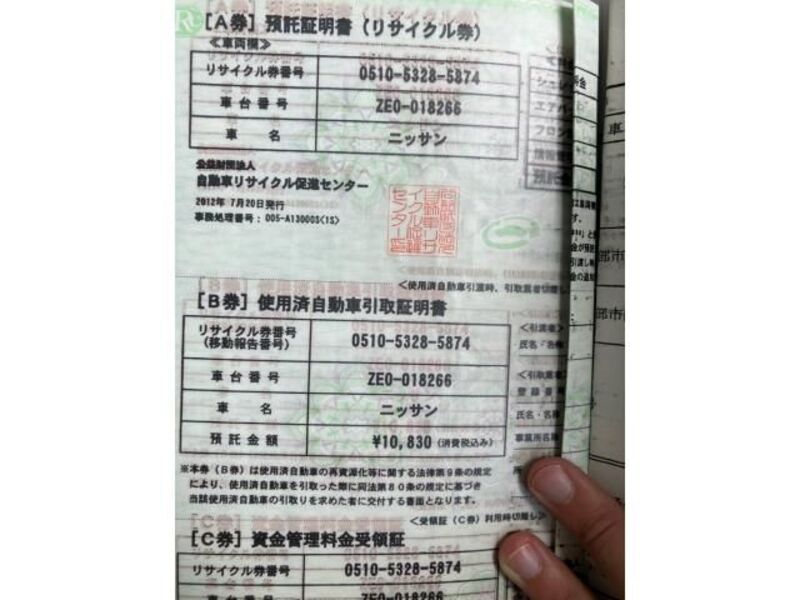 ［A券］預託証明書（リサイクル券）
≪車両欄≫
リサイクル券番号 0510-5328-5874
車台番号 ZE0-018266
車 名 ニッサン
公益財団法人
自動車リサイクル促進センター
2012年 7月20日発行
事務処理番号：005-A13000S<1S>
＜使用済自動車引渡時、引取業者切離し
［B券］使用済自動車引取証明書
リサイクル券番号
（移動報告番号） 0510-5328-5874
車台番号 ZE0-018266
車 名 ニッサン
預託金額 ¥10,830（消費税込み）
＜引渡者＞
氏名・名称
＜引取業者＞
登録番号
氏名・名称
事業所名称
※本券（B券）は使用済自動車の再資源化等に関する法律第9条の規定
により、使用済自動車を引取った際に同法第80条の規定に基づき
当該使用済自動車の引取りを求めた者に交付する書面となります。
＜受領証（C券）利用時切離し＞
［C券］資金管理料金受領証
リサイクル券番号 0510-5328-5874
車台番号 ZE0-018266